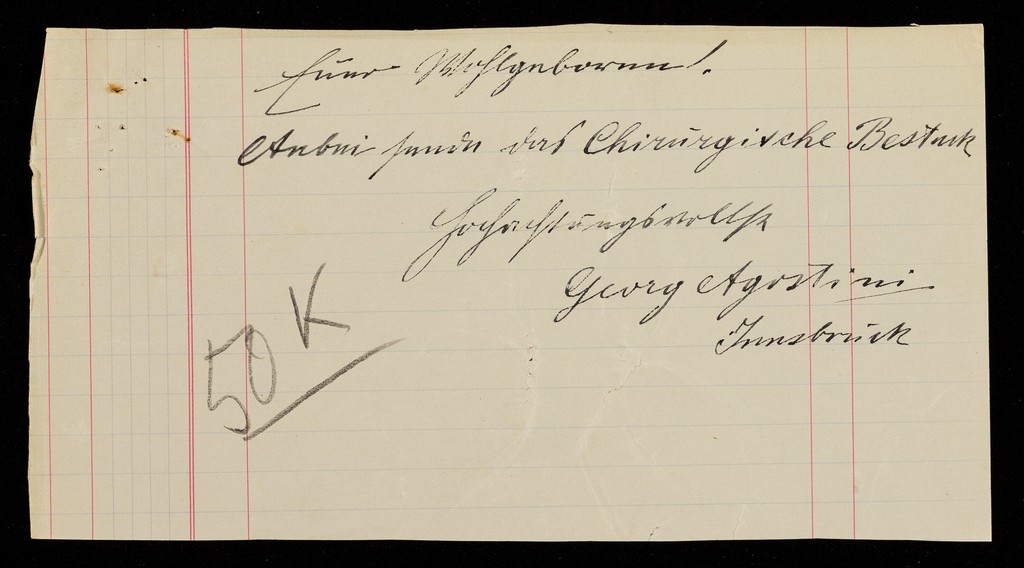 Euer Wohlgeboren!
Anbei sende das Chirurgische Besteck
Hochachtungsvollst
Georg Agostini
Innsbruck
50 K